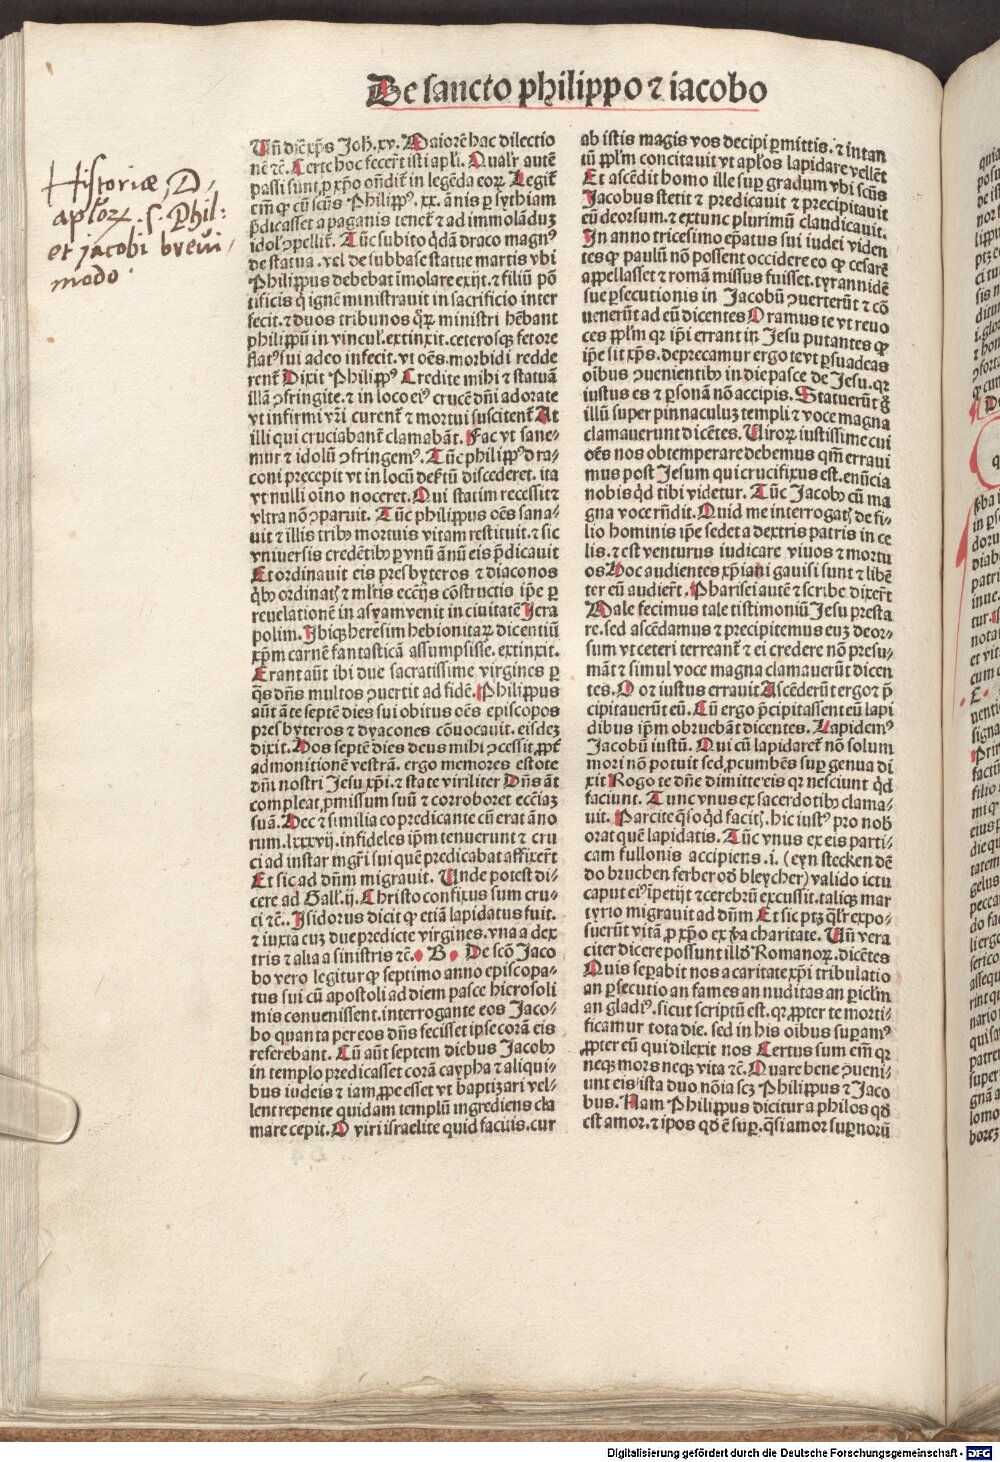 De sancto philippo ⁊ iacobo
Historiæ D.
aplorꝝ .s. Phil:
et jacobi brevi
modo.
Uñ dic̄ xp̄s Joh̄. xv. Maiorē hac dilectio
nē ⁊c̄. Certe hoc fecer̄t isti apl̄i. Qualr̄ autē
passi sunt ꝓ xp̄o on̄dit̄ in legēda eoꝝ. Legit̄
em̄ ꝙ cū scūs Philippꝰ. xx. ānis per Sythiam
p̄dicasset a paganis tenet̄ ⁊ ad immolāduꝫ
idol̓ ꝯpellit̄. Tūc subito q̄dā draco magnꝰ
de statua. vel de subbase statue martis vbi
Philippus debebat īmolare exijt. ⁊ filiū pō
tificis q̇ ignē ministrauit in sacrificio inter
fecit. ⁊ duos tribunos q̄ꝝ ministri hēbant
philippū in vincul̓. extinxit. ceterosqꝫ fetore
flatꝰ sui adeo infecit. vt oēs morbidi redde
rent̄ Dixit Philippꝰ Credite mihi ⁊ statuā
illā ꝯfringite. ⁊ in loco eiꝰ crucē dn̄i adorate
vt infirmi vr̄i curent̄ ⁊ mortui suscitent̄ At
illi qui cruciabant̄ clamabāt. Fac vt sane-
mur ⁊ idolū ꝯfringemꝰ. Tūc philippꝰ dra-
coni precepit vt in locū desertū discederet. ita
vt nulli oīno noceret. Qui statim recessit ⁊
vltra nō ꝯparuit. Tūc philippus oēs sana-
uit ⁊ illis tribꝰ mortuis vitam restituit. ⁊ sic
vniuersis credētibꝰ per vnū ānū eis p̄dicauit
Et ordinauit eis presbyteros ⁊ diaconos
q̇bꝰ ordinatꝭ ⁊ ml̓tis eccl̄ijs cōstructis ip̄e per
reuelationē in asyam venit in ciuitatē Jera
polim. Ibiqꝫ heresim hebionitaꝝ dicentiū
xp̄m carnē fantasticā assumpsisse. extinxit.
Erant aūt ibi due sacratissime virgines per
q̄s dn̄s multos ꝯuertit ad fidē. Philippus
aūt āte septē dies sui obitus oēs episcopos
presbyteros ⁊ dyacones cōuocauit. eisdēꝫ
dixit. Hos septē dies deus mihi ꝯcessit. ꝓpt̄
admonitionē vestrā. ergo memores estote
dn̄i nostri Jesu xp̄i. ⁊ state viriliter Dn̄s āt
compleat ꝓmissum suū ⁊ corroboret eccl̄iaꝫ
suā. Hec ⁊ similia eo predicante cū erat āno
rum. lxxxvij. infideles ip̄m tenuerunt ⁊ cru
ci ad instar mgr̄i sui quē predicabat affixer̄t
Et sic ad dn̄m migrauit. Unde potest di-
cere ad Gall. ij. Christo confixus sum cru-
ci ⁊c̄. Isidorus dicit ꝙ etiā lapidatus fuit.
⁊ iuxta cuꝫ due predicte virgines. vna a dex
tris ⁊ alia a sinistris ⁊c̄. B. De scō Jaco
bo vero legitur ꝙ septimo anno episcopa-
tus sui cū apostoli ad diem pasce hierosoli
mis conuenissent. interrogante eos Jaco-
bo quanta per eos dn̄s fecisset ipse corā eis
referebant. Cū aūt septem diebus Jacobꝰ
in templo predicasset corā caypha ⁊ aliqui-
bus iudeis ⁊ iam ꝓpe esset vt baptizari vel-
lent repente quidam templū ingrediens cla
mare cepit. O viri israelite quid facitis. cur
ab istis magis vos decipi permittis. ⁊ intan
tū ppl̄m concitauit vt apl̄os lapidare vellēt
Et ascēdit homo ille super gradum vbi scūs
Jacobus stetit ⁊ predicauit ⁊ precipitauit
eū deorsum. ⁊ extunc plurimū claudicauit.
In anno tricesimo ep̄atus sui iudei viden
tes ꝙ paulū nō possent occidere eo ꝙ cesarē
appellasset ⁊ romā missus fuisset. tyrannidē
sue persecutionis in Jacobū ꝯuerterūt ⁊ cō
uenerūt ad eū dicentes Oramus te vt reuo
ces ppl̄m qr ip̄i errant in Jesu putantes ꝙ
ip̄e sit xp̄s. deprecamur ergo te vt persuadeas
oībus ꝯuenientibꝰ in die pasce de Jesu. qr
iustus es ⁊ personā nō accipis. Statuerūt g̊
illū super pinnaculuꝫ templi ⁊ voce magna
clamauerunt dicētes. Uiroꝝ iustissime cui
oēs nos obtemperare debemus qm̄ erraui
mus post Jesum qui crucifixus est. enūcia
nobis qd̄ tibi videtur. Tūc Jacobꝰ cū ma
gna voce rn̄dit. Quid me interrogatꝭ de fi-
lio hominis ip̄e sedet a dextris patris in ce
lis. ⁊ est venturus iudicare viuos ⁊ mortu
os Hoc audientes xp̄iani gauisi sunt ⁊ libē
ter eū audier̄t. Pharisei autē ⁊ scribe dixer̄t
Male fecimus tale tistimoniū Jesu presta
re. sed ascēdamus ⁊ precipitemus euꝫ deor-
sum vt ceteri terreant̄ ⁊ ei credere nō presu-
māt ⁊ simul voce magna clamauerūt dicen
tes. O o iustus errauit Ascēderūt ergo ⁊ p̄
cipitauerūt eū. Cū ergo p̄cipitassent eū lapi
dibus ip̄m obruebāt dicentes. Lapidemꝰ
Jacobū iustū. Qui cū lapidaret̄ nō solum
mori nō potuit sed ꝓcumbēs super genua di
xit Rogo te dn̄e dimitte eis qr nesciunt qd̄
faciunt. Tunc vnus ex sacerdotibꝰ clama-
uit. Parcite q̄so qd̄ facitꝭ. hic iustꝰ pro nob̄
orat quē lapidatis. Tūc vnus ex eis parti-
cam fullonis accipiens .i. (eyn stecken dē
do bruchen ferber od̓ bleycher) valido ictu
caput eiꝰ īpetijt ⁊ cerebrū excussit. taliqꝫ mar
tyrio migrauit ad dn̄m Et sic ptꝫ ql̓r expo-
suerūt vitā ꝓ xp̄o ex p̄ua charitate. Uñ vera
citer dicere possunt illd̓ Romanoꝝ. dicētes
Quis separabit nos a caritate xp̄i tribulatio
an persecutio an fames an nuditas an pericl̄m
an gladiꝰ. sicut scriptū est. qr ꝓpter te morti-
ficamur tota die. sed in his oībus superamꝰ
ꝓpter eū qui dilexit nos Certus sum em̄ qr
neqꝫ mors neqꝫ vita ⁊c̄. Quare bene ꝯueni-
unt eis ista duo nōia scꝫ Philippus ⁊ Jaco
bus. Nam Philippus dicitur a philos qd̓
est amor. ⁊ ipos qd̓ ē super. q̄si amor supernorū
Digitalisierung gefördert durch die Deutsche Forschungsgemeinschaft - DFG